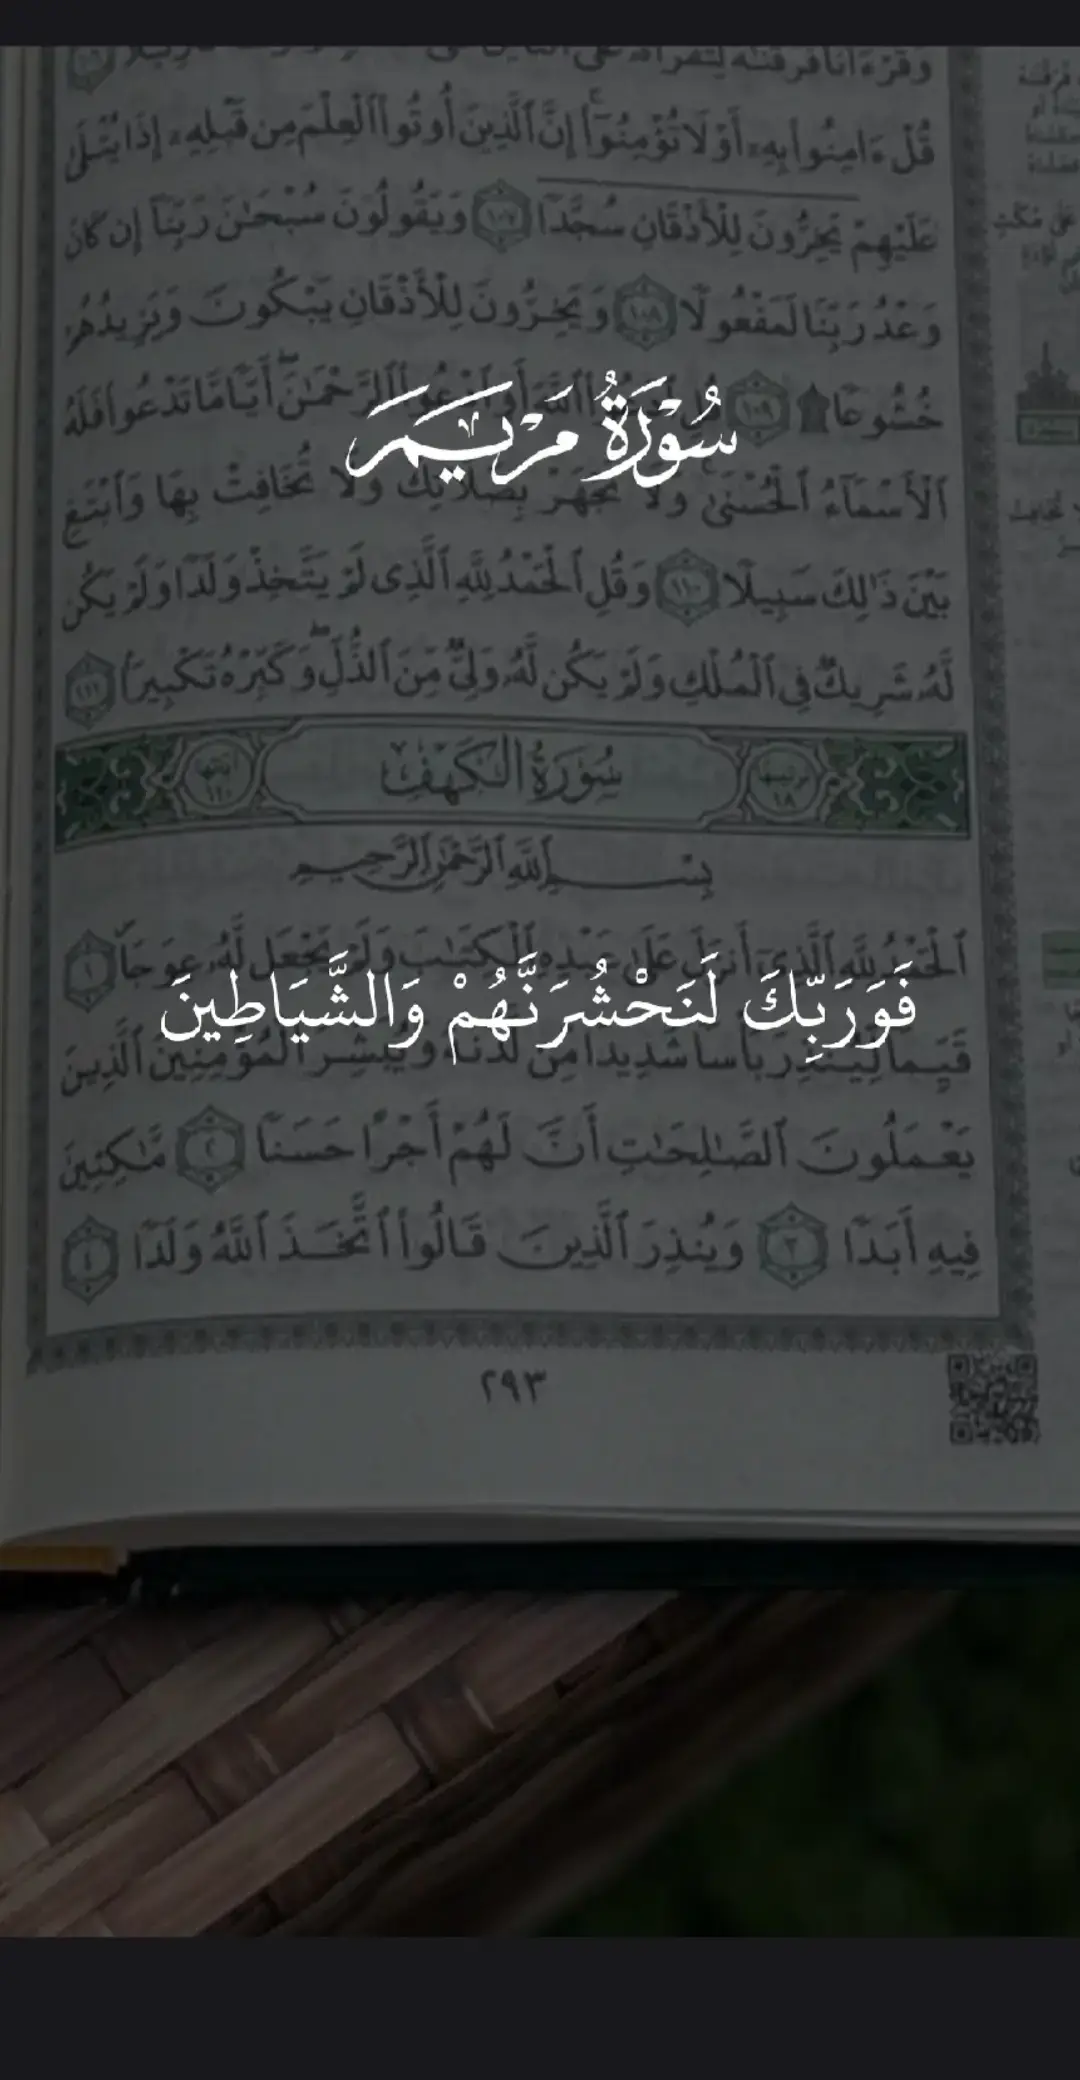 قُلْ ءَامِنُوا۟ بِهِۦٓ أَوْ لَا تُؤْمِنُوٓا۟ إِنَّ ٱلَّذِينَ أُوتُوا۟ ٱلْعِلْمَ مِن قَبْلِهِۦٓ إِذَا يُتْلَىٰ
عَلَيْهِمْ يَخِرُّونَ لِلْأَذْقَانِ سُجَّدًا ١٠٧ وَيَقُولُونَ سُبْحَٰنَ رَبِّنَآ إِن كَانَ
وَعْدُ رَبِّنَا لَمَفْعُولًا ١٠٨ وَيَخِرُّونَ لِلْأَذْقَانِ يَبْكُونَ وَيَزِيدُهُمْ
سُورَةُ مَرْيَمَ
خُشُوعًا ١٠٩ ٱللَّهَ أَوِ ٱدْعُوا۟ ٱلرَّحْمَٰنَ أَيًّا مَّا تَدْعُوا۟ فَلَهُ
ٱلْأَسْمَآءُ ٱلْحُسْنَىٰ وَلَا تَجْهَرْ بِصَلَاتِكَ وَلَا تُخَافِتْ بِهَا وَٱبْتَغِ
بَيْنَ ذَٰلِكَ سَبِيلًا ١١٠ وَقُلِ ٱلْحَمْدُ لِلَّهِ ٱلَّذِى لَمْ يَتَّخِذْ وَلَدًا وَلَمْ يَكُن
لَّهُۥ شَرِيكٌ فِى ٱلْمُلْكِ وَلَمْ يَكُن لَّهُۥ وَلِىٌّ مِّنَ ٱلذُّلِّ وَكَبِّرْهُ تَكْبِيرًۢا ١١١
ترتيبها ١٨ سُورَةُ الكَهْفِ آياتها ١١٠
بِسْمِ ٱللَّهِ ٱلرَّحْمَٰنِ ٱلرَّحِيمِ
ٱلْحَمْدُ لِلَّهِ ٱلَّذِىٓ أَنزَلَ عَلَىٰ عَبْدِهِ ٱلْكِتَٰبَ وَلَمْ يَجْعَل لَّهُۥ عِوَجَاۜ ١
فَوَرَبِّكَ لَنَحْشُرَنَّهُمْ وَالشَّيَاطِينَ
قَيِّمًا لِّيُنذِرَ بَأْسًا شَدِيدًا مِّن لَّدُنْهُ وَيُبَشِّرَ ٱلْمُؤْمِنِينَ ٱلَّذِينَ
يَعْمَلُونَ ٱلصَّٰلِحَٰتِ أَنَّ لَهُمْ أَجْرًا حَسَنًا ٢ مَّٰكِثِينَ
فِيهِ أَبَدًا ٣ وَيُنذِرَ ٱلَّذِينَ قَالُوا۟ ٱتَّخَذَ ٱللَّهُ وَلَدًا ٤
٢٩٣